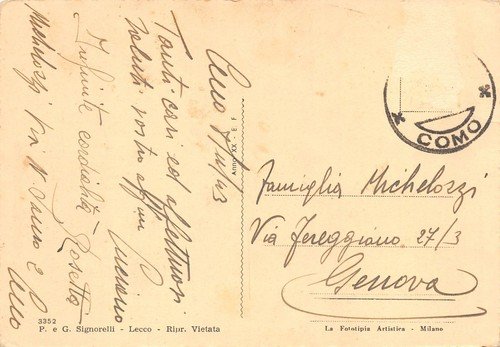 Lecco 7/10/43
Tanti cari ed affettuosi
saluti vostri affmi Luciano
Infinite cordialità Rosetta
Michelozzi Via
Lecco
Anno XX E F
COMO
Famiglia Michelozzi
Via Fereggiano 27/3
Genova
3352
F. e G. Signorelli - Lecco - Ripr. Vietata
La Fototipia Artistica - Milano